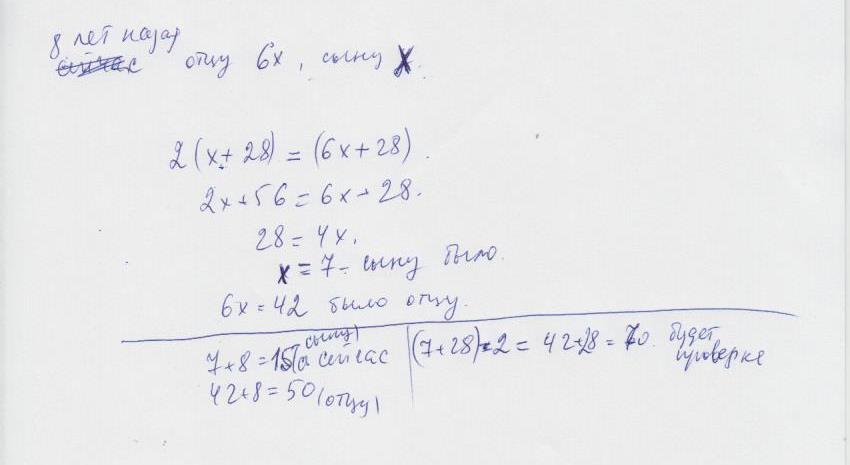 8 лет назад
отцу 6x, сыну x.
2(x+28)=(6x+28).
2x+56=6x+28.
28=4x.
x=7- сыну было.
6x=42 было отцу.
7+8=15 (сыну) сейчас
42+8=50 (отцу)
(7+28)·2=42+28=70. будет
проверка